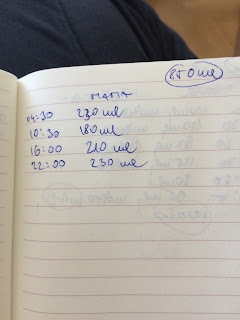 850 ml
MAMA
04:30 230 ml
10:30 180 ml
16:00 210 ml
22:00 230 ml